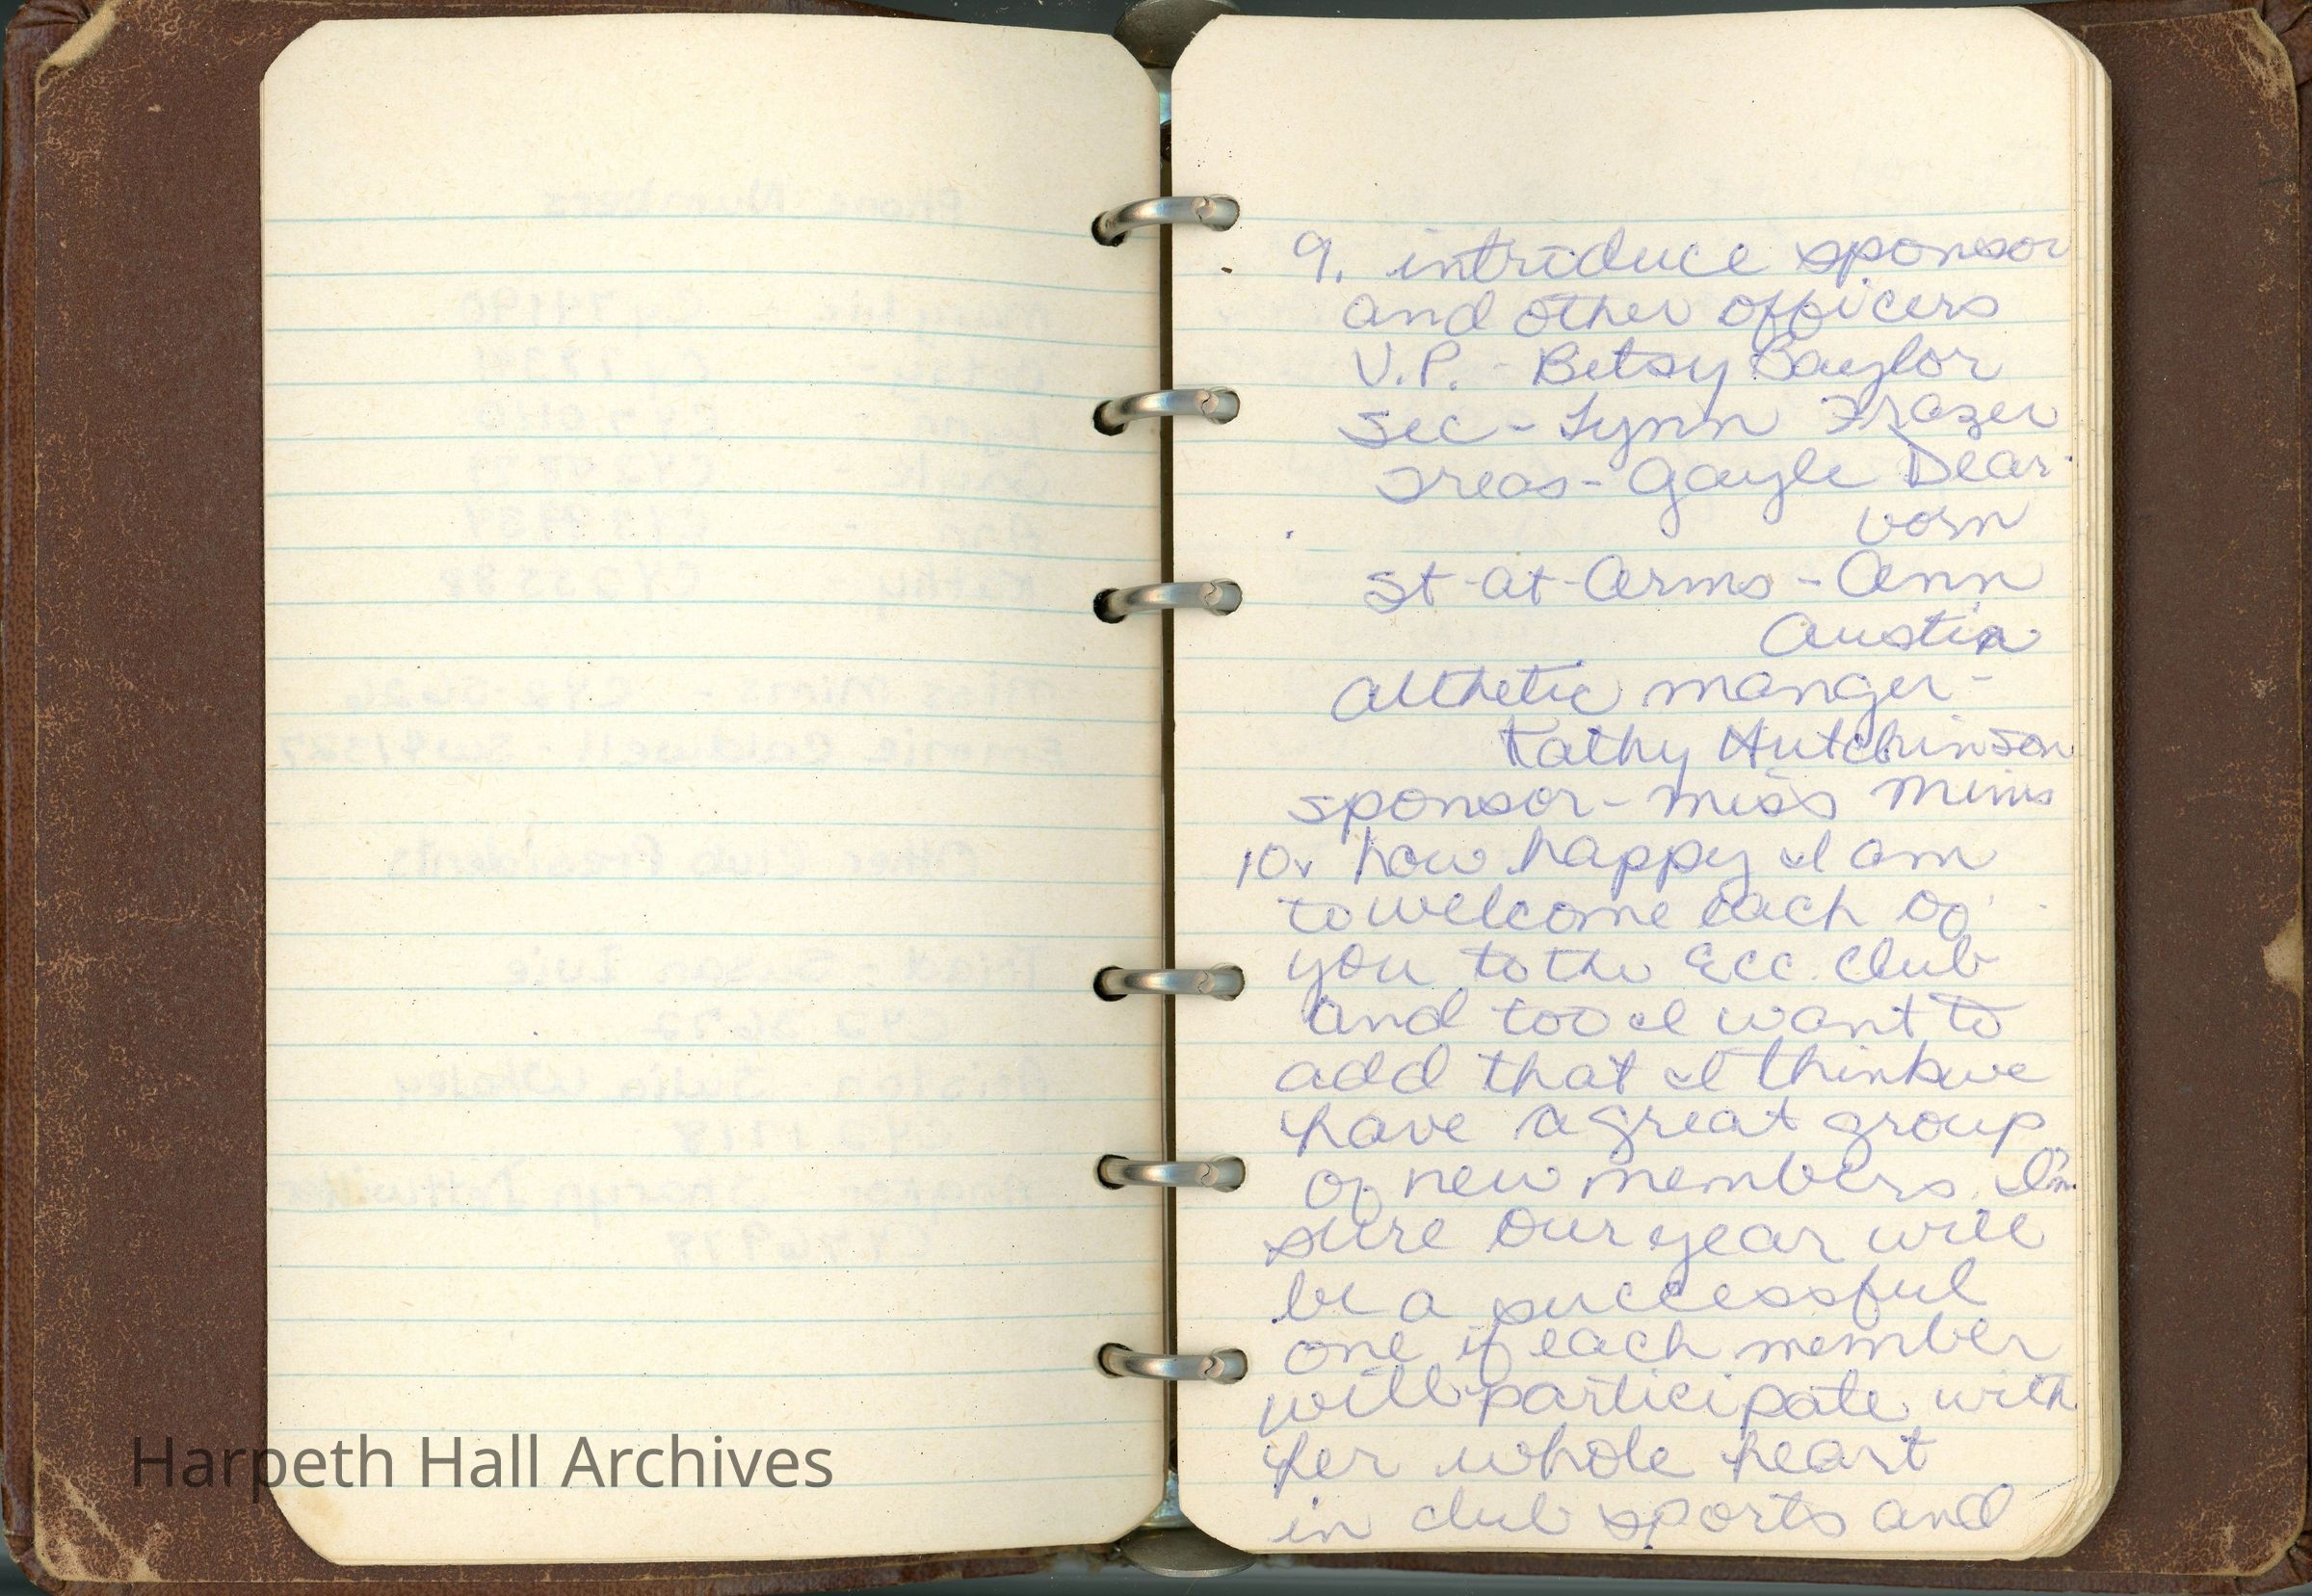 9. introduce sponsor
and other officers
V.P. - Betsy Baylor
Sec - Lynn Frazer
Treas - Gayle Dear-
born
St-at-Arms - Ann
Austin
Althetic manger -
Kathy Hutchinson
sponsor - Miss Mims
10. how happy I am
to welcome each of
you to the Ecc. Club
and too I want to
add that I think we
have a great group
of new members. I'm
sure our year will
be a successful
one if each member
will participate with
her whole heart
in club sports and
Harpeth Hall Archives